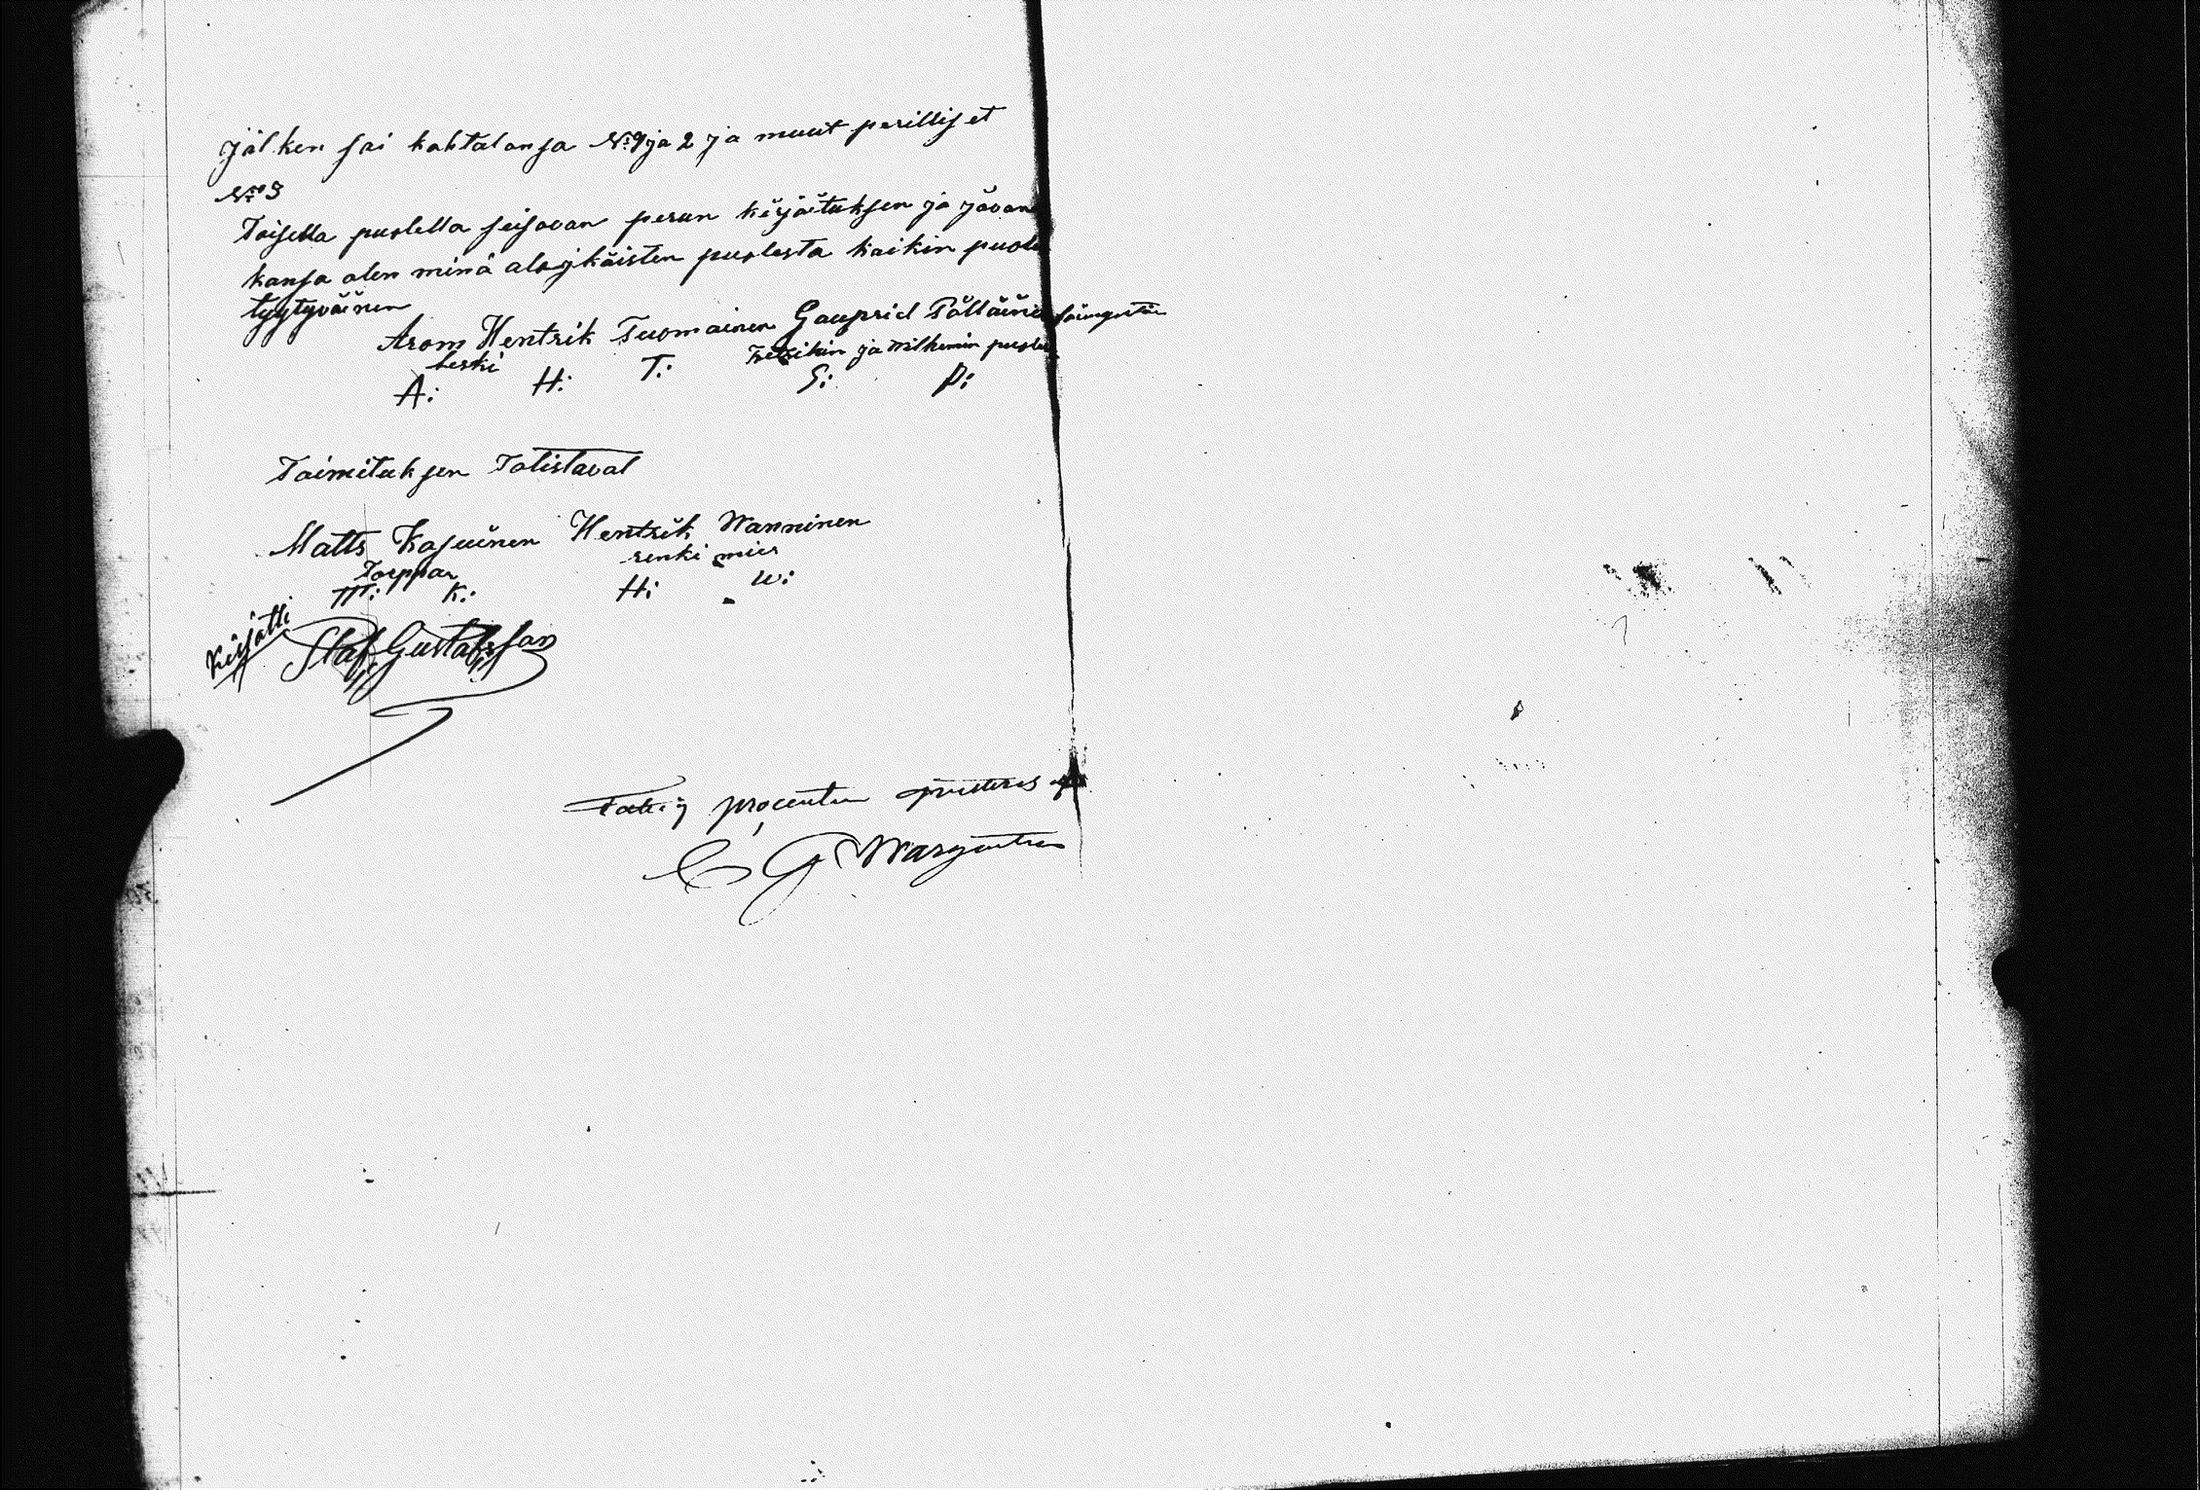 jälken sai kahtalansa No 1 ja 2 ja muut perilliset
No 3
Toisella puolella seisovan perun kirjoituksen ja jaon
kansa olen minä alaikäisten puolesta kaikin puol
tyytyväinen
Arom Hentrik Tuomainen Gauprid Pöllänen
leski ja Wilhemin puol
A: H: T: G: P:
Toimituksen Totistavat
Matts Kasuinen Hentrik Wanninen
Torppar renki mies
M: K: H: W:
Kirjotti Staf Gustafsson
Fattig procenten qvitteras
C G Wargentin